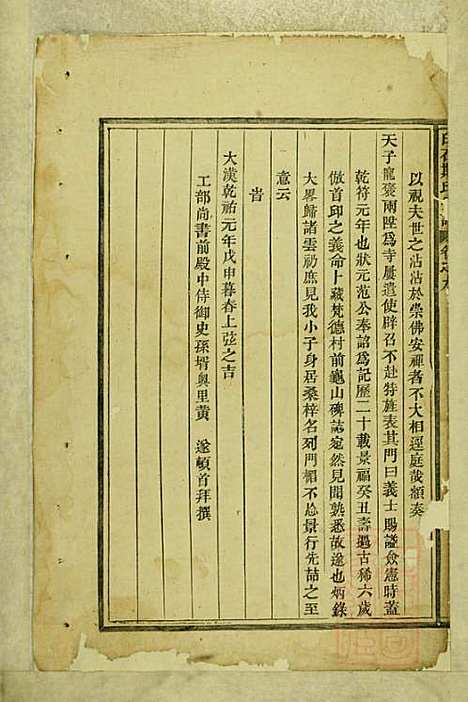 以視夫世之沾沾於崇佛安禪者不大相逕庭哉額奏
天子寵褒兩陞爲寺屢遣使辟召不赴特旌表其門曰義士賜謚僉憲時蓋
乾符元年也狀元范公奉詔爲記歷二十載景福癸丑壽邁古稀六歲
倣首印之義命卜藏梵德村前龜山碑誌宛然見聞熟悉故遂也炳錄
大畧歸諸雲礽庶見我小子身居桑梓名列門楣不忘景行先喆之至
意云
旹
大漢乾祐元年戊申暮春上弦之吉
工部尚書前殿中侍御史孫壻與里黄 遂頓首拜撰